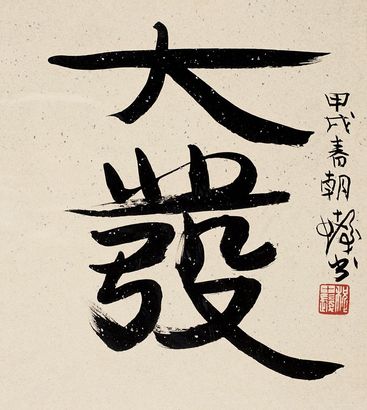 大發
甲戌春朝書